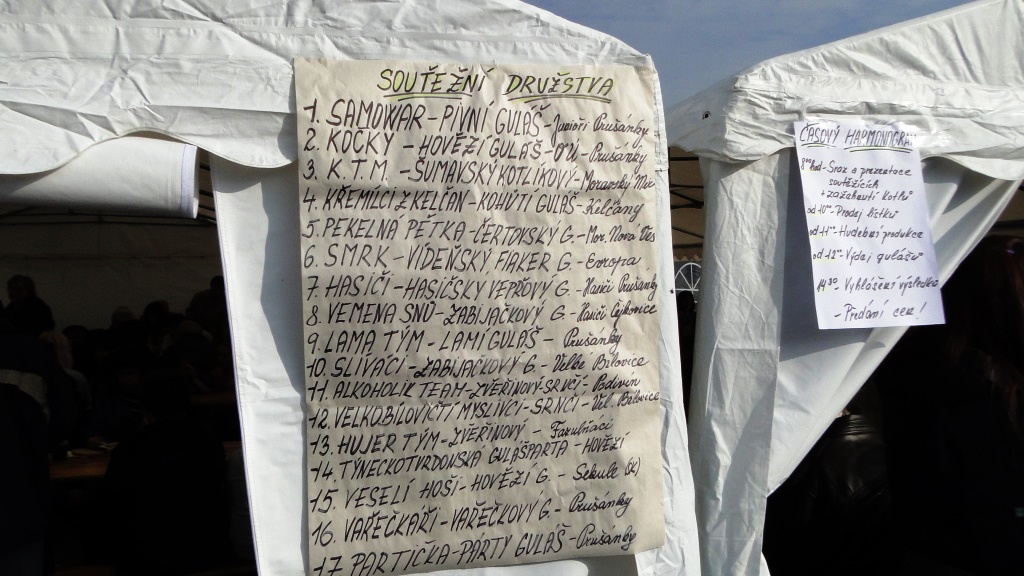 SOUTĚŽNÍ DRUŽSTVA
1. SAMOWAR - PIVNÍ GULÁŠ - Junioři Prušánky
2. KOČKY - HOVĚZÍ GULÁŠ - Prušánky
3. K.T.M. - ŠUMAVSKÝ KOTLÍKOVÝ - Moravský
4. KŘEMÍLCI Z KELČAN - KOHUTÍ GULÁŠ - Kelčany
5. PEKELNÁ PĚTKA - ČERTOVSKÝ G. - Mor. Nová Ves
6. SMRK - VÍDEŇSKÝ FIAKER G. - Evropa
7. HASIČI - HASIČSKY VEPŘOVÝ G. - Hasiči Prušánky
8. VEMENA SNŮ - ZABIJAČKOVÝ G. - Hasiči Čejkovice
9. LAMA TÝM - LAMÍ GULÁŠ - Prušánky
10. SLÍVÁCI - ZABIJAČKOVÝ G. - Velké Bílovice
11. ALKOHOLIK TEAM - ZVĚŘINOVÝ-SRNČÍ - Podivín
12. VELKOBÍLOVIČTÍ MYSLIVCI - SRNČÍ - Vel. Bílovice
13. HUJER TÝM - ZVĚŘINOVÝ - Fazulňáci
14. TÝNECKOTVRDONSKÁ GULÁŠPARTA - HOVĚZÍ
15. VESELÍ HOŠI - HOVĚZÍ G. - Sekule (SK)
16. VAŘEČKÁŘI - VAŘEČKOVÝ G. - Prušánky
17. PARTIČKA - PÁRTY GULÁŠ - Prušánky
ČASOVÝ HARMONOGRAM
8°° hod - Sraz a prezentace
soutěžících
+ zažehnutí kotlů
od 10°° - Prodej lístků
od 11°° - Hudební produkce
od 12°° - Výdej gulášů
14.30 - Vyhlášení výsledků
- Předání cen!